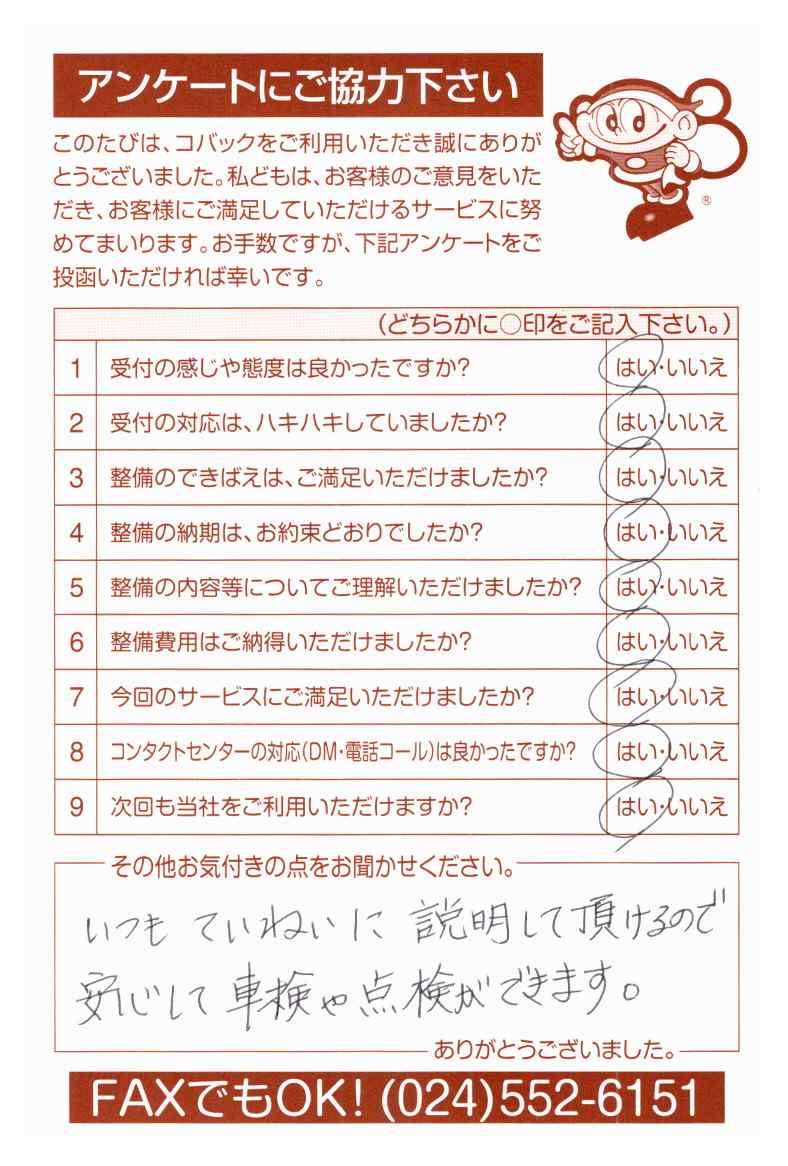 アンケートにご協力下さい
このたびは、コバックをご利用いただき誠にありが
とうございました。私どもは、お客様のご意見をいた
だき、お客様にご満足していただけるサービスに努
めてまいります。お手数ですが、下記アンケートをご
投函いただければ幸いです。
®
(どちらかに○印をご記入下さい。)
1 受付の感じや態度は良かったですか? はい・いいえ
2 受付の対応は、ハキハキしていましたか? はい・いいえ
3 整備のできばえは、ご満足いただけましたか? はい・いいえ
4 整備の納期は、お約束どおりでしたか? はい・いいえ
5 整備の内容等についてご理解いただけましたか? はい・いいえ
6 整備費用はご納得いただけましたか? はい・いいえ
7 今回のサービスにご満足いただけましたか? はい・いいえ
8 コンタクトセンターの対応(DM・電話コール)は良かったですか? はい・いいえ
9 次回も当社をご利用いただけますか? はい・いいえ
その他お気付きの点をお聞かせください。
いつも ていねいに 説明して頂けるので
安心して 車検や点検ができます。
ありがとうございました。
FAXでもOK! (024)552-6151